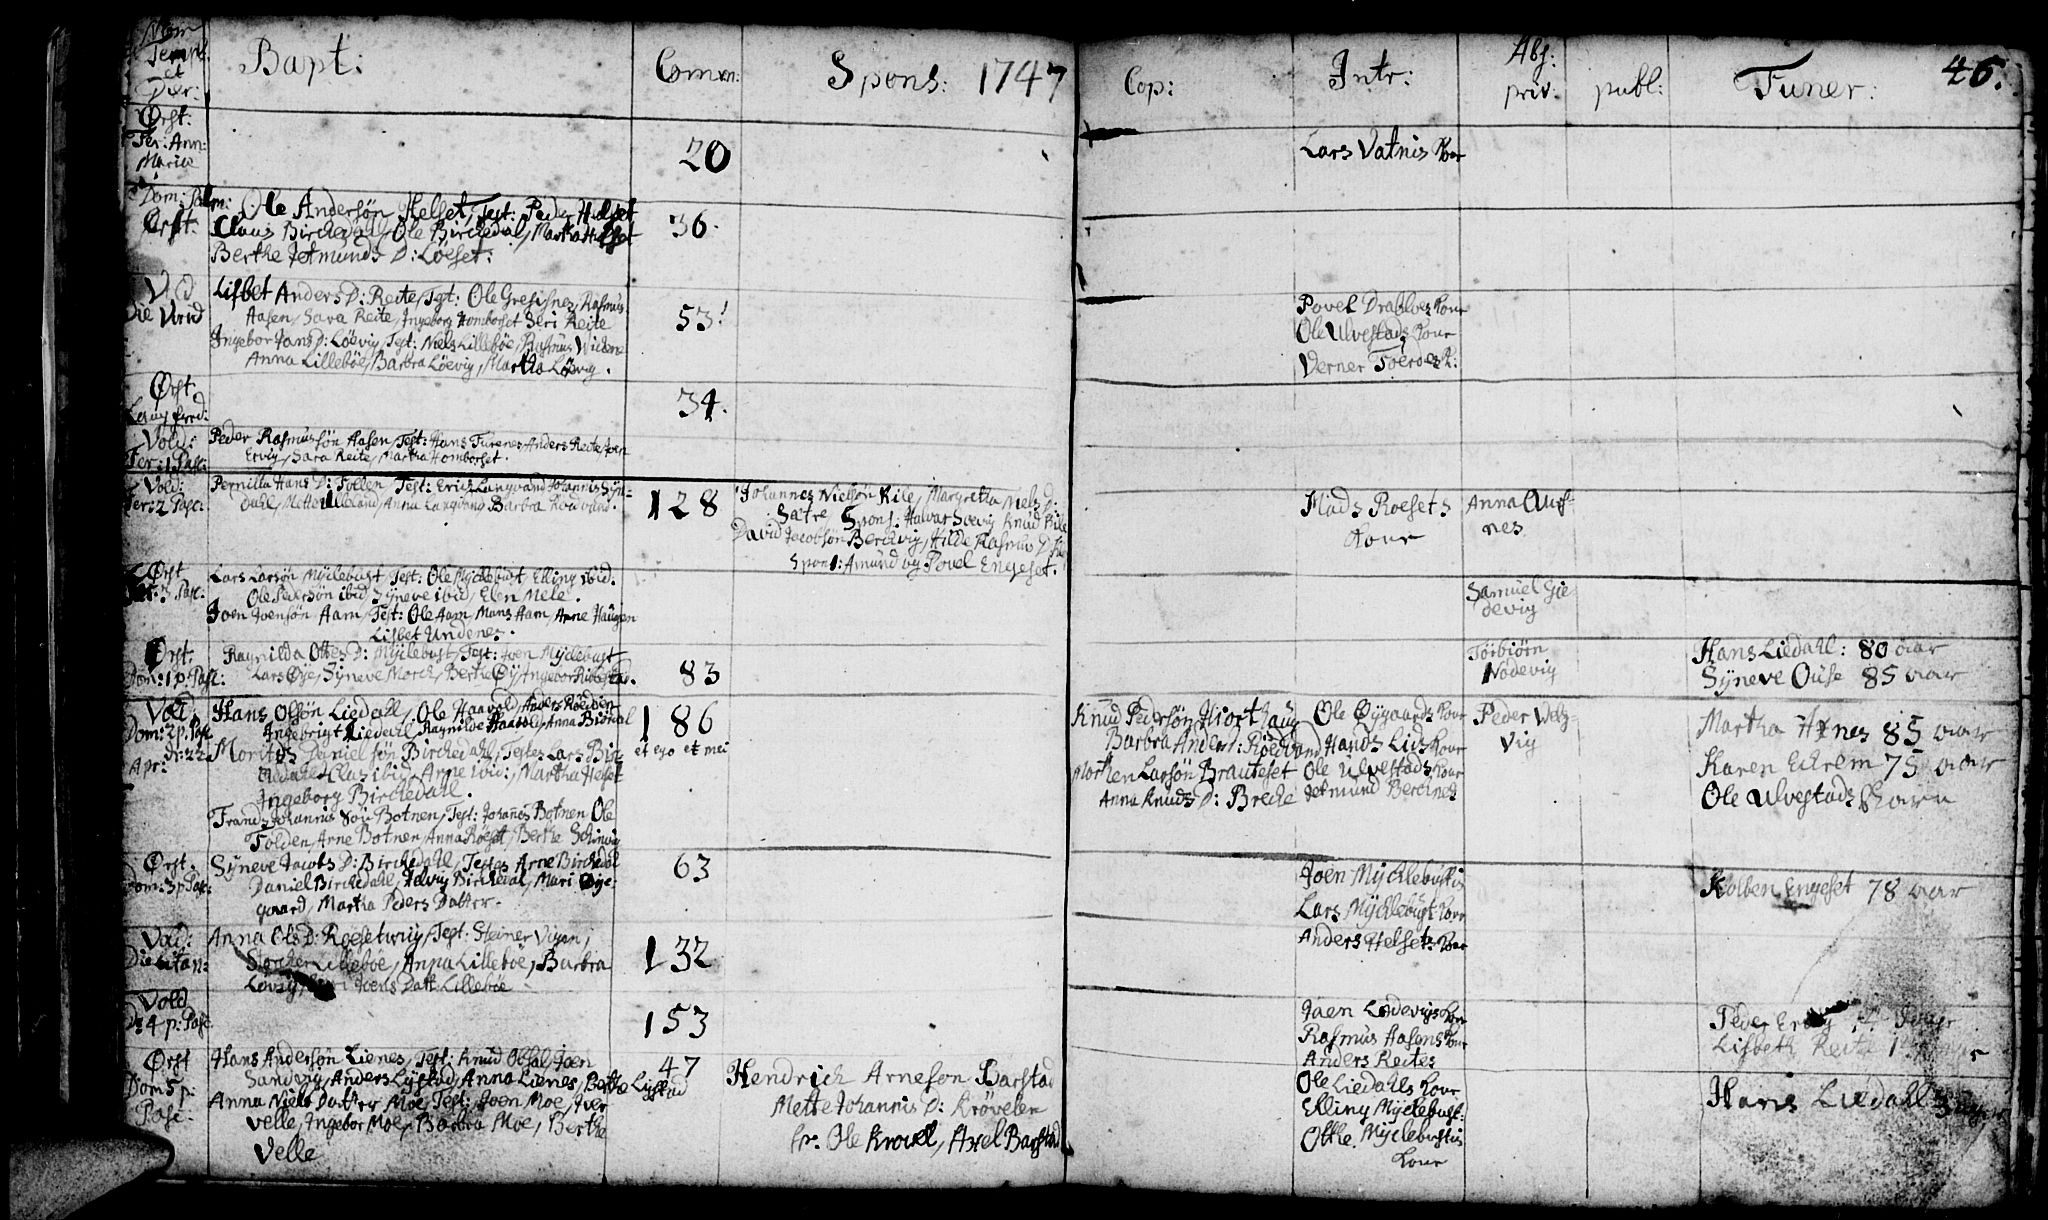 Nom
Templ:
et
Dier:
Bapt:
Comm:
Spons: 1747
Cop:
Intr:
Abs:
priv:
publ:
Funer:
46.
Ørst:
Fer: Ann:
Mariæ
20
Lars Vatnis Kone
Dom: Palm:
Ørst:
Ole Andersøn Helset, Test: Peder Helset
Claus Birchedal, Ole Birchedal, Martha Helset
Berthe Jetmunds D: Løeset:
36.
Vold
Die Virid
Lisbet Anders D: Reite, Test: Ole Gresisnes, Rasmus
Aasen, Sara Reite, Ingeborg Homborset Seri Reite
Ingebor Jans D: Løevig, Test: Niels Lillebøe, Rasmus
Anna Lillebøe, Barbra Løevig, Martha Løevig.
53!
Povel Drabløes Kone
Ole Ulvestads Kone
Verner
Ørst.
Langfred:
34.
Vold:
Fer: 1 Pasc:
Peder Rasmussøn Aasen, Test: Hans Furenes Anders Reite Joen
Ervig, Sara Reite, Martha Homborset.
Vold:
Fer: 2 Pasc:
Pernilla Hans D: Follen Test: Erich Langvand Johannis
dahl, Mette Lilleland, Anna Langvand Barbra
128
Johannes Nielsøn Kile, Margretha Niels D:
Sætre Spons: Halvar Soevig Knud Kile
David Jacobsøn Berchvig, Hilde Rasmus D:
Spons: Amund og Povel Engeset.
Mads Roesets
Kone
Anna Aurs-
nes
Ørst
Pasc:
Lars Larsøn Mÿclebust, Test: Ole Mÿclebust Elling ibid.
Ole Pedersøn ibid Sÿneve ibid, Elen Mele.
Joen Joensøn Aam, Test: Ole Aam Mons Aam, Arne Haugen
Lisbet Undenes.
Samuel Gie-
devig
Ørst:
Dom: 1 p: Pasc:
Ragnilda Ottes D: Mÿclebust, Test: Joen Mÿclebust
Lars Øÿe, Sÿneve Morch, Berthe Øÿ, Ingebor
83
Torbiørn
Nodevig
Hans Liedahl: 80 aar
Sÿneve Ouse 85 aar
Vold,
Dom: 2 p. Pasc
d: 22
Apr:
Hans Olsøn Liedahl, Ole Haavold, Anders
Ingebrigt Liedahl, Ragnilde Haavold, Anna
186
et ego et mei
Morits Danielsøn Birchedahl, Testes Lars Bir-
chedahl Claus ibid, Arne ibid:, Martha Helset
Ingeborg Birchedahl.
Frands Johannis Søn Botnen, Test: Johañes Botnen Ole
Folden, Arne Botnen, Anna Røeset, Berthe
Knud Pedersøn Hiorthaug
Barbra Anders D: Roedvand
Morten Larsøn Brauteset
Anna Knuds D: Breche
Ole Øÿgaards Kone
Hands Lids Kone
Ole Ulvestads Kone
Jetmund
Peder Velz-
vig
Martha 85 aar
Karen Echrem 75 aar
Ole Ulvestads Barn
Ørst.
Dom: 3 p Pasc:
Sÿneve Jacobs D: Birchedahl, Testes Arne Birchedal
Daniel Birchedahl, Birchedal, Mari Øÿe-
gaard, Martha Peders Datter.
63
Joen Mÿchlebustis
Lars Mÿchlebust Kone
Anders Helsets Kone
Kolben Engeset 78 aar
Vold:
Die Litan:
Anna Ols D: Roesetvig, Test: Steiner Vigen,
Lillebøe, Anna Lillebøe, Barbra
Løvig, Joens Datt: Lillebøe
132
Vold
D: 4 p: Pasc
153
Joen Lødevigs Kone
Rasmus Aasens Kone
Anders Reites
Peder
Lisbeth Reite
Ørst
Dom 5 p:
Pasc:
Hans Andersøn Lienes, Test: Knud Joen
Sandvig, Anders Lÿstad, Anna Lienes, Berthe Lÿstad
Anna Niels Datter Moe, Test: Joen Moe, Iver
Velle, Ingebor Moe, Barbra Moe, Berthe
Velle
47
Hendrich Arneson Barstad
Mette Johannis D: Krøvelen
Sp: Ole Krovel, Axel Barstad
Ole Liedahls Kone
Elling Mÿclebust:
Otthe Mÿclebustis
Kone
Hans Liedahll